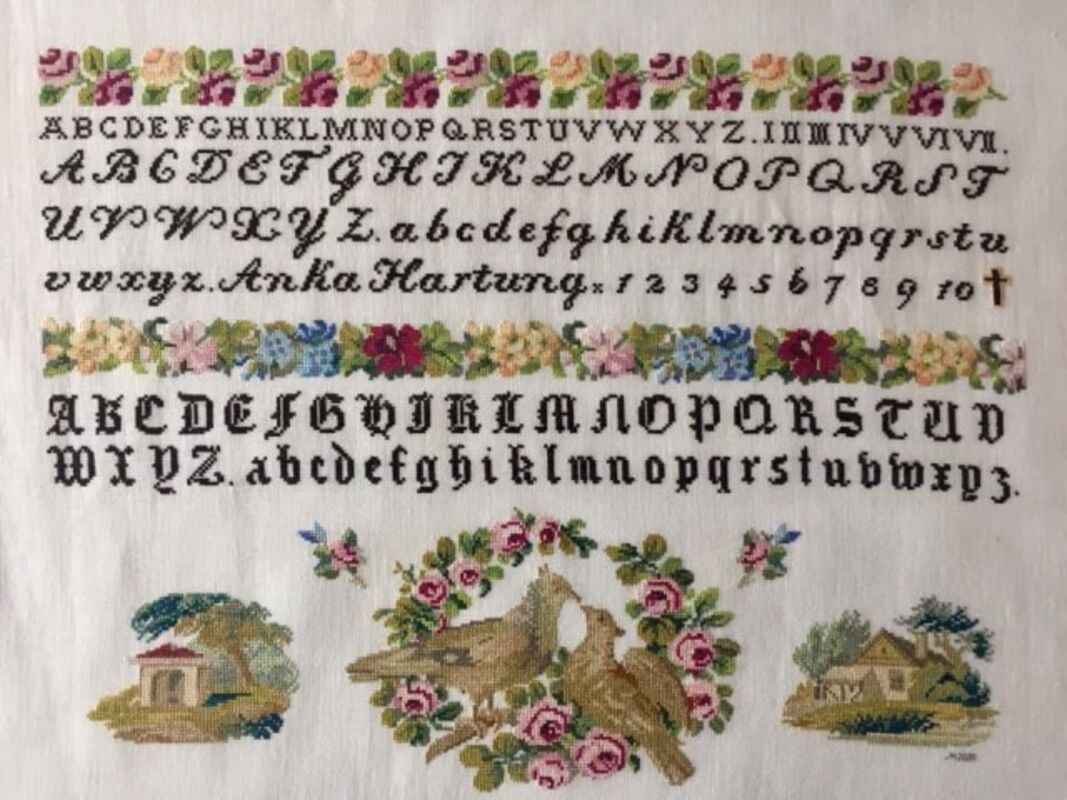 ABCDEFGHIKLMNOPQRSTUVWXYZ. I II III IV V VI VII.
A B C D E F G H I K L M N O P Q R S T
U V W X Y Z. a b c d e f g h i k l m n o p q r s t u
v w x y z. Anka Hartung x 1 2 3 4 5 6 7 8 9 10 †
A B C D E F G H I K L M N O P Q R S T U V
W X Y Z. a b c d e f g h i k l m n o p q r s t u v w x y z.